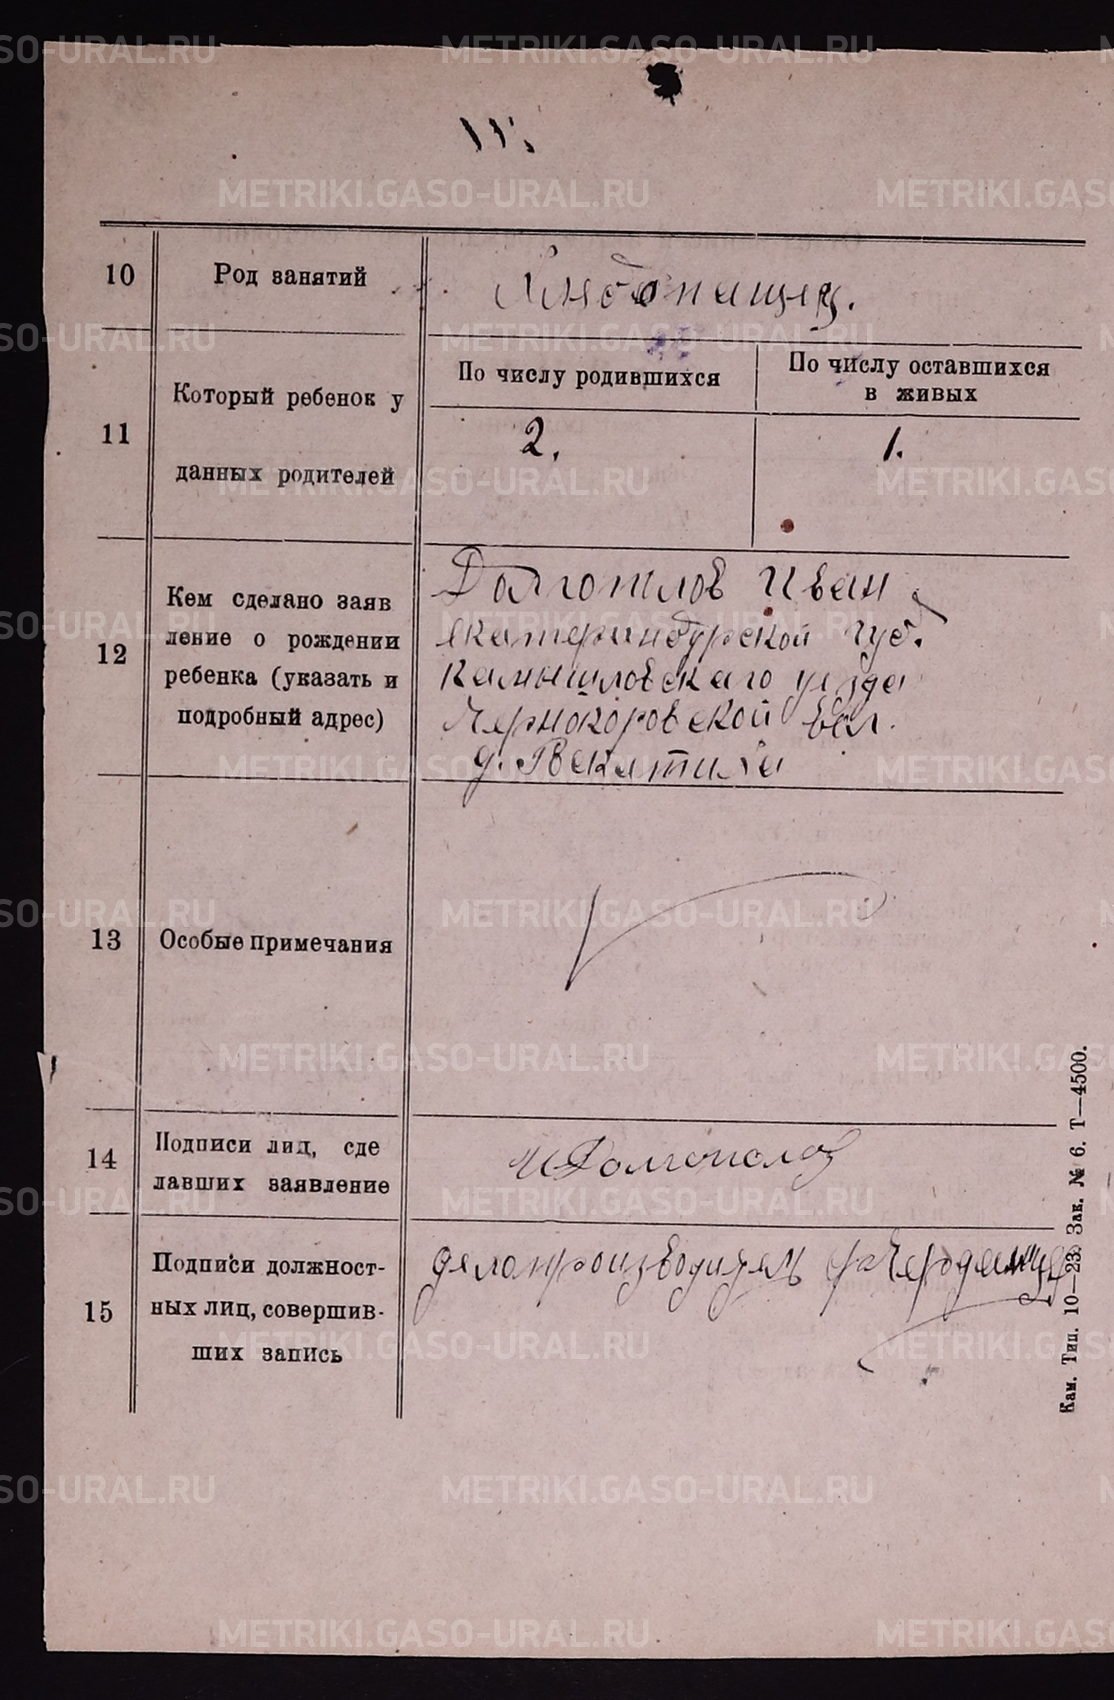 METRIKI.GASO-URAL.RU
10
Род занятий
Хлебопашец.
11
Который ребенок у
данных родителей
По числу родившихся
По числу оставшихся
в живых
2.
1.
12
Кем сделано заяв
ление о рождении
ребенка (указать и
подробный адрес)
Иван
Екатеринбургской губ.
Камышловского уезда
Чернокоровской вол.
д.
13
Особые примечания
14
Подписи лиц, сде
лавших заявление
И Долгополов
15
Подписи должност-
ных лиц, совершив-
ших запись
делопроизводитель
Кам. Тип. 10—23. Зак. № 6. Т—4500.